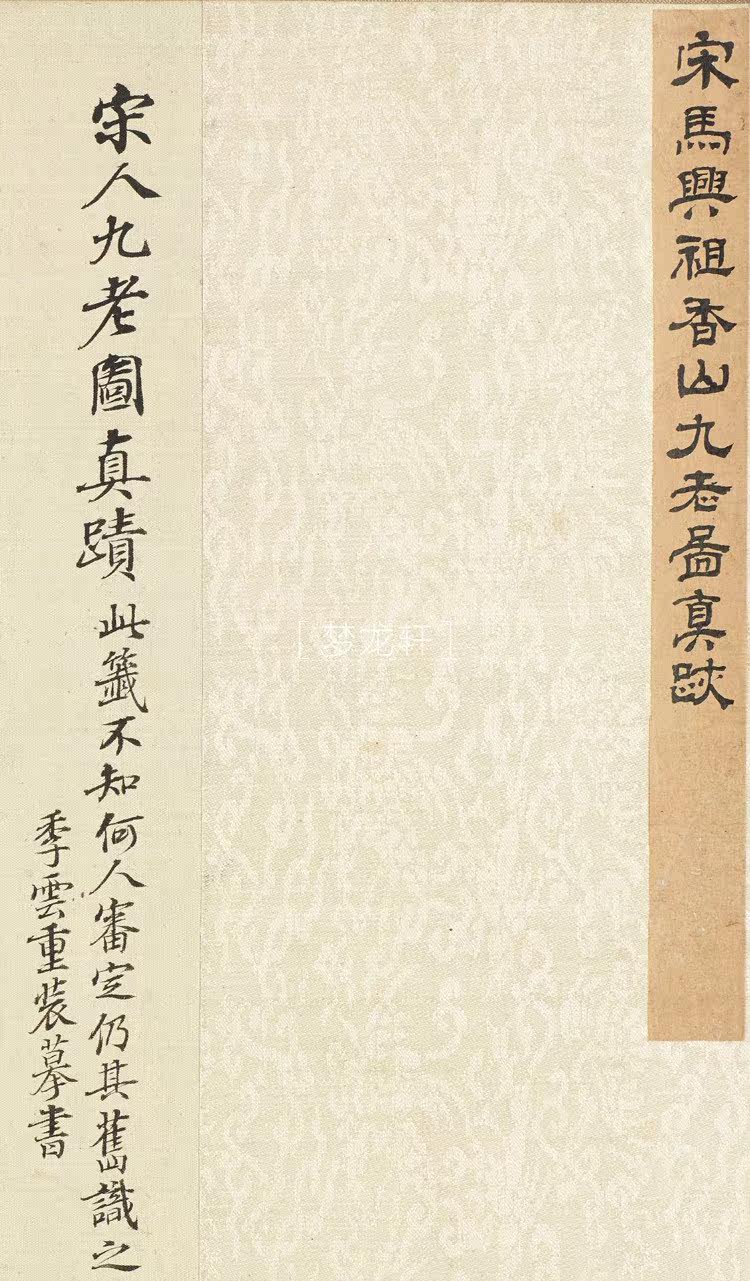 宋馬興祖香山九老圖真跡
宋人九老圖真蹟 此籤不知何人審定仍其舊識之
季雲重裝摹書
梦龙轩